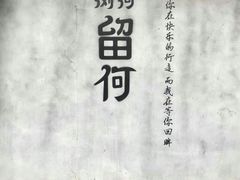 留何
你在快乐的行走 而我在等你回眸